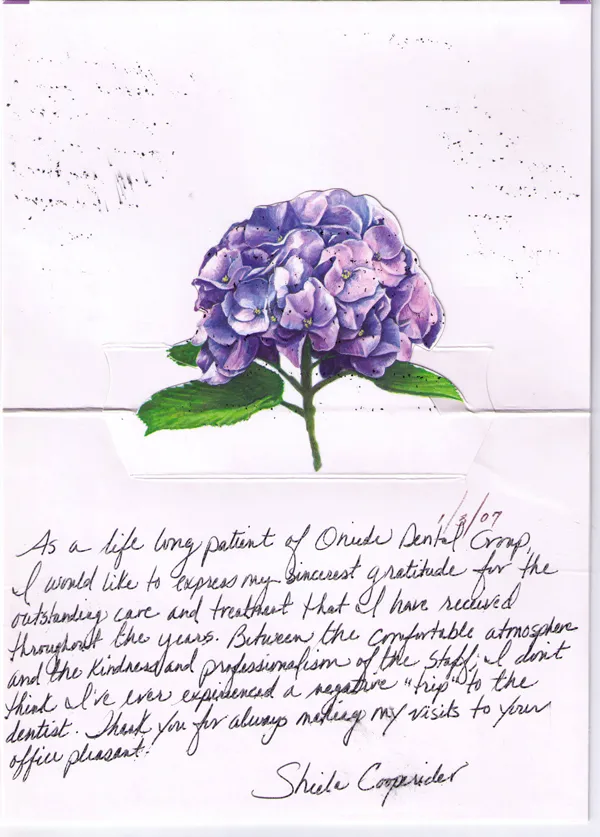 1/3/07
As a life long patient of Oneida Dental Group,
I would like to express my sincerest gratitude for the
outstanding care and treatment that I have received
throughout the years. Between the comfortable atmosphere
and the kindness and professionalism of the staff, I don't
think I've ever experienced a negative "trip" to the
dentist. Thank you for always making my visits to your
office pleasant.
Sheila Cooperider